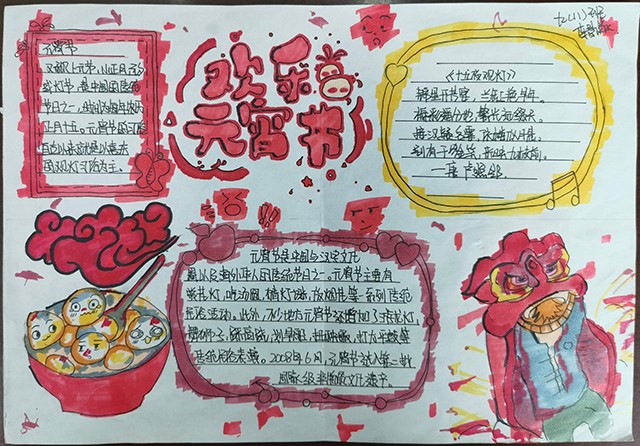 七(1)班
元宵节
又称上元节、小正月、元夕
或灯节,是中国的传统
节日之一,时间为每年农历
正月十五。元宵节的习俗
自古以来就是以热闹
的观灯习俗为主。
欢乐
元宵节
《十五夜观灯》
锦里开芳宴,兰缸艳早年。
缛彩遥分地,繁光远缀天。
接汉疑星落,依楼似月悬。
别有千金笑,来映九枝前。
—唐 卢照邻
元宵节是中国与汉字文化
圈以及海外华人的传统节日之一。元宵节主要有
赏花灯,吃汤圆,猜灯谜,放烟花等一系列传统
民俗活动。此外,不少地方元宵节还增加了耍龙灯,
耍狮子,踩高跷,划旱船,扭秧歌,打太平鼓等
传统民俗表演。2008年6月,元宵节选入第二批
国家级非物质文化遗产。